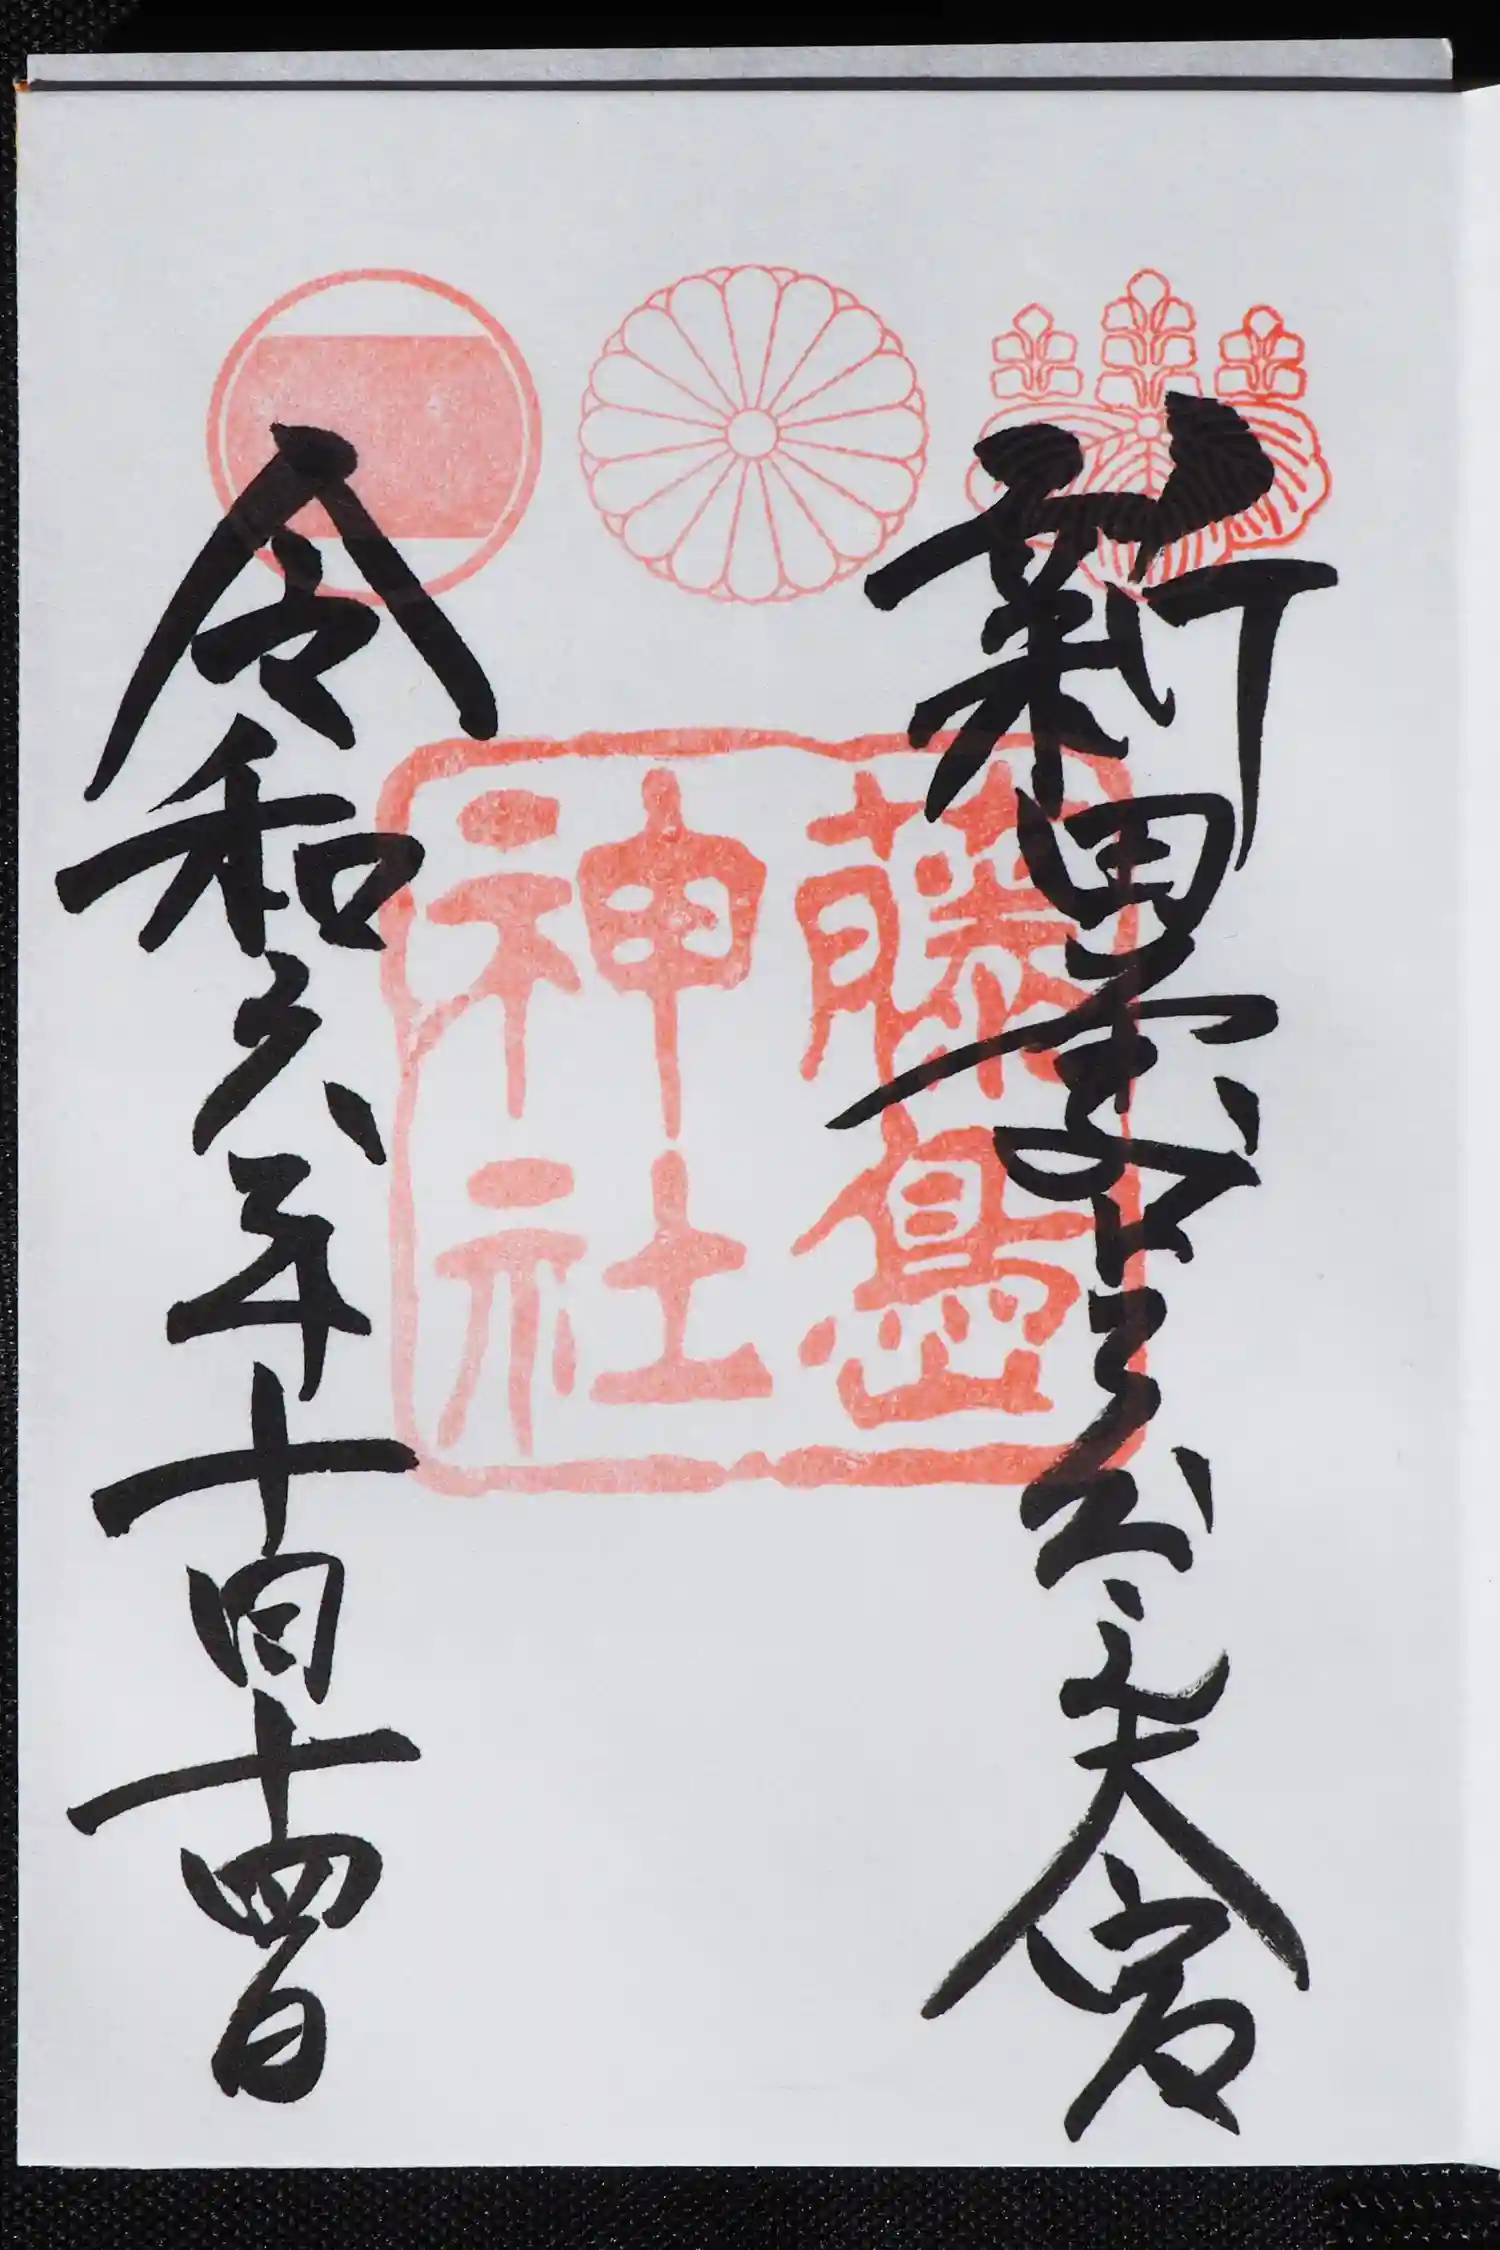 新田義貞公之大宮
藤島
神社
令和六年十月十四日